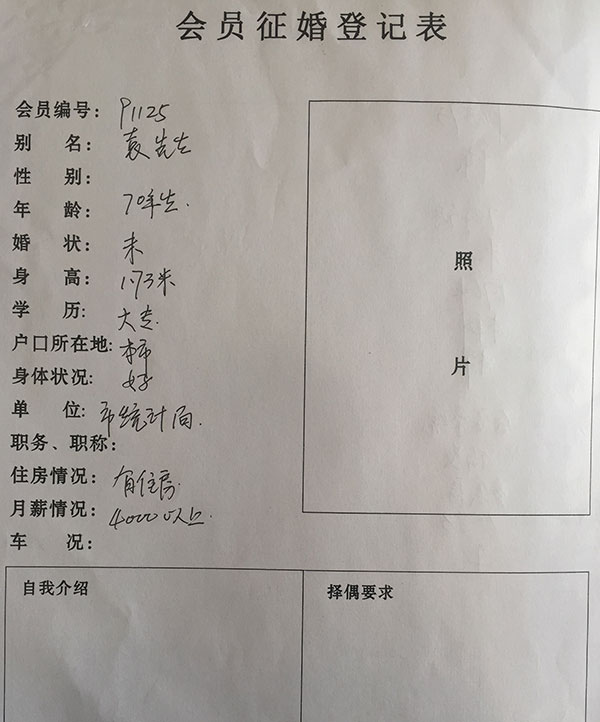 会员征婚登记表
会员编号: P1125
别 名: 袁先生
性 别:
年 龄: 70年生.
婚 状: 未
身 高: 1.73米
学 历: 大专.
户口所在地: 本市
身体状况: 好
单 位: 市统计局.
职务、职称:
住房情况: 有住房.
月薪情况: 4000以上.
车 况:
照
片
自我介绍
择偶要求